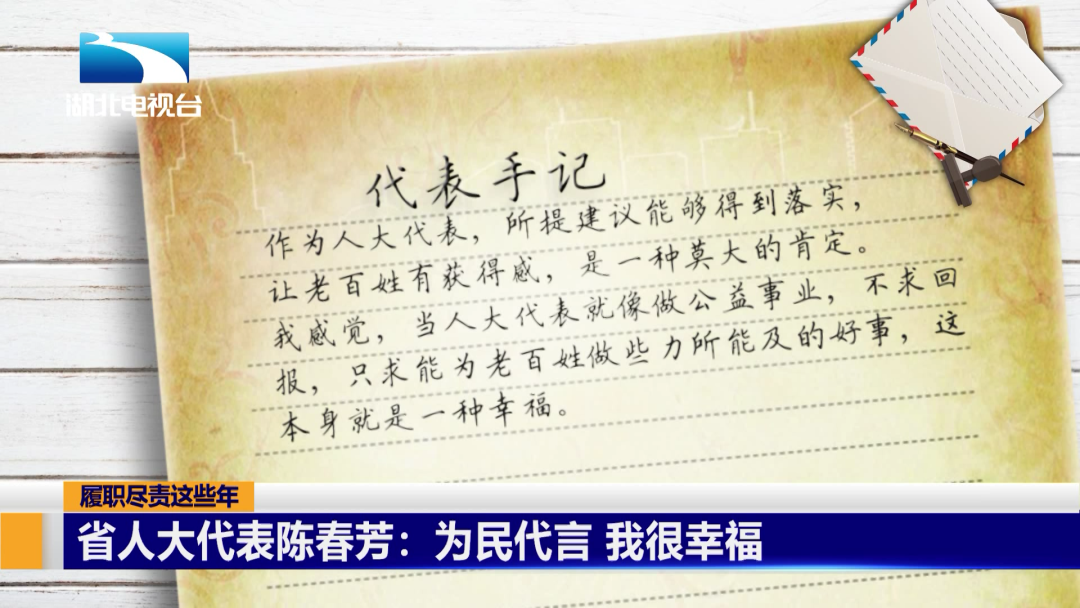 湖北电视台
代表手记
作为人大代表，所提建议能够得到落实，
让老百姓有获得感，是一种莫大的肯定。
我感觉，当人大代表就像做公益事业，不求回
报，只求能为老百姓做些力所能及的好事，这
本身就是一种幸福。
履职尽责这些年
省人大代表陈春芳：为民代言 我很幸福